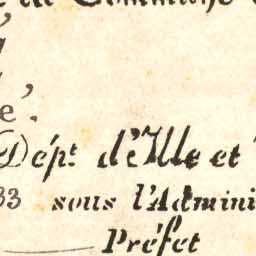 Dépt. d'Ille et
33 sous l'Admini
Préfet